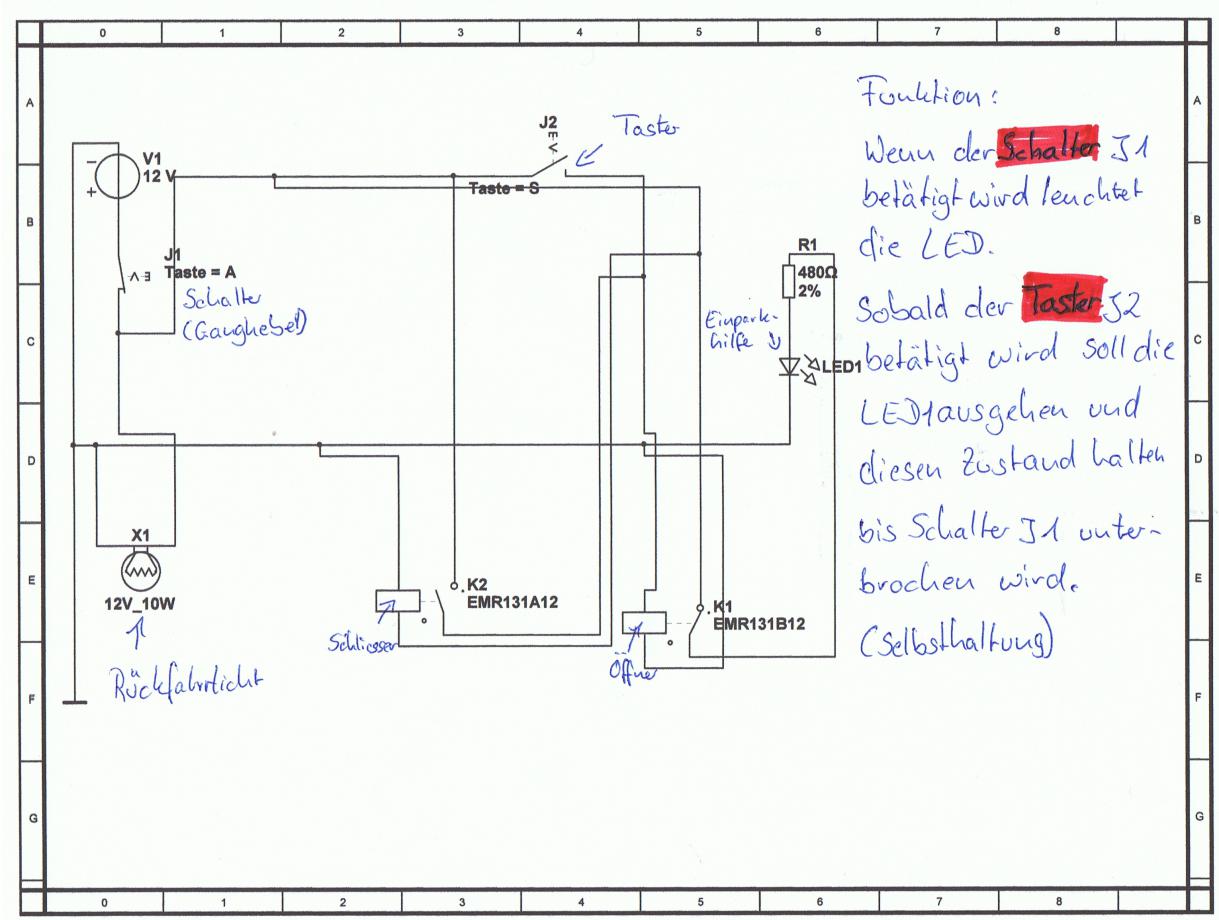 0 1 2 3 4 5 6 7 8
A
B
C
D
E
F
G
A
B
C
D
E
F
G
V1
12 V
J1
Taste = A
E V
Schalter
(Ganghebel)
J2
E V
Taster
Taste = S
R1
480Ω
2%
Einpark-
hilfe
LED1
X1
12V_10W
Rückfahrlicht
K2
EMR131A12
Schliesser
K1
EMR131B12
Öffner
Funktion:
Wenn der Schalter J1
betätigt wird leuchtet
die LED.
Sobald der Taster J2
betätigt wird soll die
LED1 ausgehen und
diesen Zustand halten
bis Schalter J1 unter-
brochen wird.
(Selbsthaltung)
0 1 2 3 4 5 6 7 8